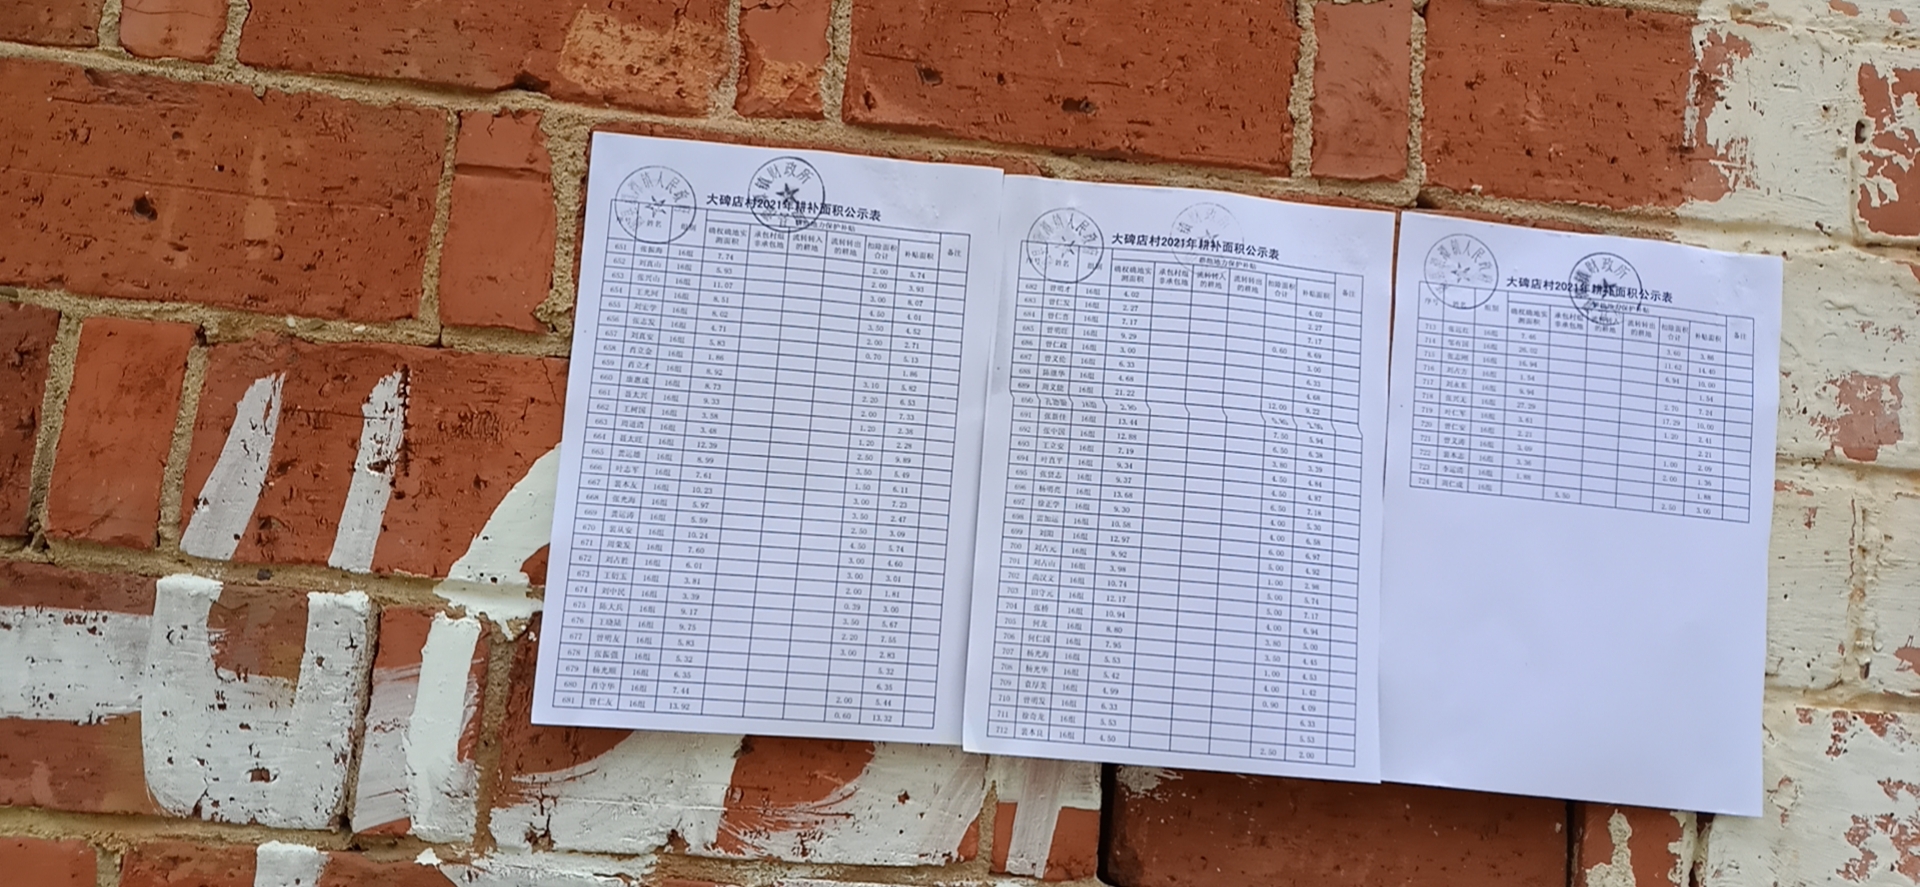 大碑店村2021年耕补面积公示表
人民政
镇财政所
姓名 组别 耕地地力保护补贴
确权确地实测面积 承包村组非承包地 流转转入的耕地 流转转出的耕地 扣除面积合计 补贴面积 备注
651 张振海 16组 7.74 2.00 5.74
652 刘真山 16组 5.93 2.00 3.93
653 张兴山 16组 11.07 3.00 8.07
654 王光河 16组 8.51 4.50 4.01
655 刘宏学 16组 8.02 3.50 4.52
656 张志发 16组 4.71 2.00 2.71
657 刘真安 16组 5.83 0.70 5.13
658 肖立金 16组 1.86 1.86
659 肖立才 16组 8.92 3.10 5.82
660 康惠成 16组 8.73 2.20 6.53
661 聂太兴 16组 9.33 2.00 7.33
662 王树国 16组 3.58 1.20 2.38
663 周道浩 16组 3.48 1.20 2.28
664 聂太旺 16组 12.39 2.50 9.89
665 龚运雄 16组 8.99 3.50 5.49
666 叶志军 16组 7.61 1.50 6.11
667 裴木友 16组 10.23 3.00 7.23
668 张光海 16组 5.97 3.50 2.47
669 龚运涛 16组 5.59 2.50 3.09
670 裴从安 16组 10.24 4.50 5.74
671 周荣发 16组 7.60 3.00 4.60
672 刘占胜 16组 6.01 3.00 3.01
673 王衍玉 16组 3.81 2.00 1.81
674 刘中民 16组 3.39 0.39 3.00
675 陈大兵 16组 9.17 3.50 5.67
676 王晓陆 16组 9.75 2.20 7.55
677 曾明友 16组 5.83 3.00 2.83
678 张振强 16组 5.32 5.32
679 杨光顺 16组 6.35 6.35
680 肖守华 16组 7.44 2.00 5.44
681 曾仁友 16组 13.92 0.60 13.32
大碑店村2021年耕补面积公示表
人民政
序号 姓名 组别 耕地地力保护补贴
确权确地实测面积 承包村组非承包地 流转转入的耕地 流转转出的耕地 扣除面积合计 补贴面积 备注
682 曾明才 16组 4.02 4.02
683 曾仁发 16组 2.27 2.27
684 曾仁喜 16组 7.17 7.17
685 曾明旺 16组 9.29 0.60 8.69
686 曾仁政 16组 3.00 3.00
687 曾义伦 16组 6.33 6.33
688 陈继华 16组 4.68 4.68
689 周义陆 16组 21.22 12.00 9.22
690 16组
691 张新佳 16组 13.44 7.50 5.94
692 张中国 16组 12.88 6.50 6.38
693 王立安 16组 7.19 3.80 3.39
694 叶真平 16组 9.34 4.50 4.84
695 张贤志 16组 9.37 4.50 4.87
696 杨明亮 16组 13.68 6.50 7.18
697 徐正学 16组 9.30 4.00 5.30
698 雷加运 16组 10.58 4.00 6.58
699 刘阳 16组 12.97 6.00 6.97
700 刘占元 16组 9.92 5.00 4.92
701 刘占山 16组 3.98 1.00 2.98
702 高汉文 16组 10.74 5.00 5.74
703 田守元 16组 12.17 5.00 7.17
704 张桥 16组 10.94 4.00 6.94
705 何龙 16组 8.80 3.80 5.00
706 何仁国 16组 7.95 3.50 4.45
707 杨光海 16组 5.53 1.00 4.53
708 杨光华 16组 5.42 4.00 1.42
709 袁厚英 16组 4.99 0.90 4.09
710 曾明发 16组 6.33 6.33
711 徐奇龙 16组 5.53 5.53
712 裴木良 16组 4.50 2.50 2.00
大碑店村2021年耕补面积公示表
人民政
镇财政所
序号 姓名 组别 耕地地力保护补贴
确权确地实测面积 承包村组非承包地 流转转入的耕地 流转转出的耕地 扣除面积合计 补贴面积 备注
713 张远松 16组 7.46 3.60 3.86
714 邹有国 16组 26.02 11.62 14.40
715 张志刚 16组 16.94 6.94 10.00
716 刘占方 16组 1.54 1.54
717 刘永东 16组 9.94 2.70 7.24
718 张兴文 16组 27.29 17.29 10.00
719 叶仁军 16组 3.61 1.20 2.41
720 曾仁安 16组 2.21 2.21
721 曾义涛 16组 3.09 1.00 2.09
722 裴木志 16组 3.36 2.00 1.36
723 李运浩 16组 1.88 1.88
724 周仁成 16组 5.50 2.50 3.00